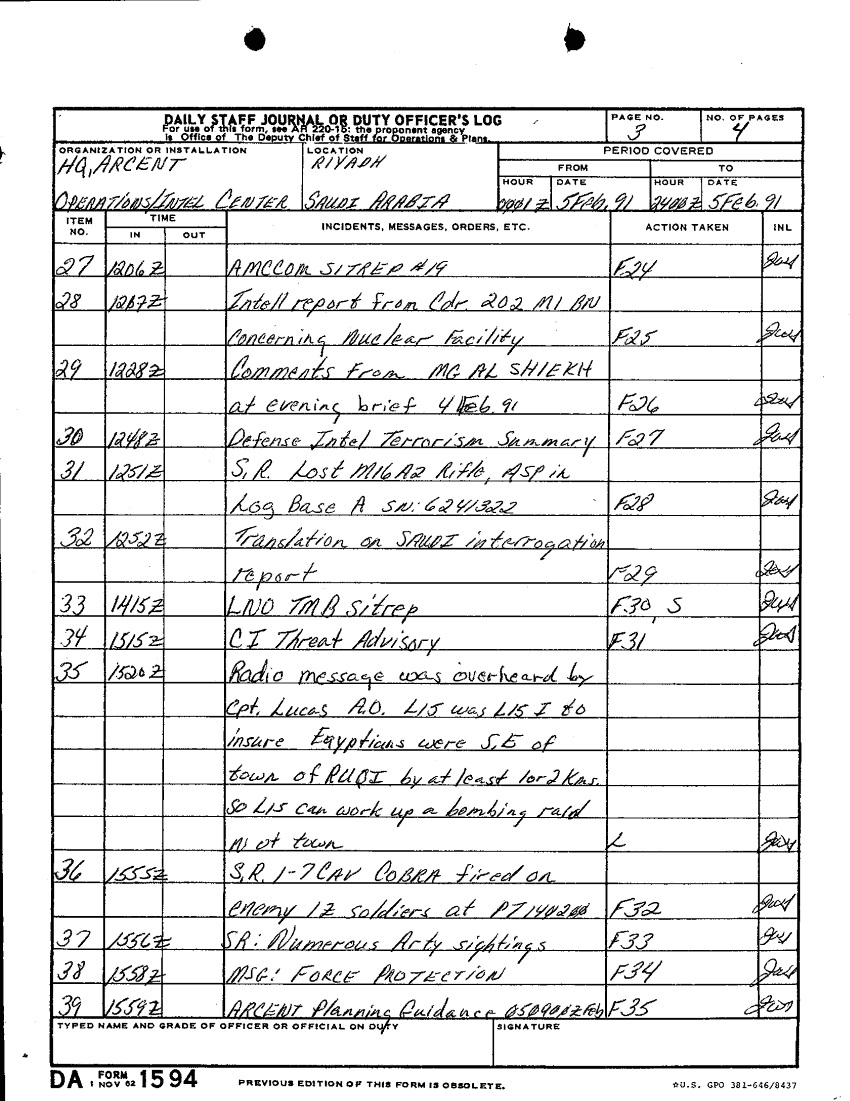 DAILY STAFF JOURNAL OR DUTY OFFICER'S LOG
For use of this form, see AR 220-15; the proponent agency
is Office of The Deputy Chief of Staff for Operations & Plans.
PAGE NO.
3
NO. OF PAGES
4
ORGANIZATION OR INSTALLATION
HQ, ARCENT
OPERATIONS/INTEL CENTER
LOCATION
RIYADH
SAUDI ARABIA
PERIOD COVERED
FROM
TO
HOUR DATE HOUR DATE
0001 Z 5 Feb, 91 2400 Z 5 Feb. 91
ITEM NO. TIME IN OUT INCIDENTS, MESSAGES, ORDERS, ETC. ACTION TAKEN INL
27 1206 Z AMCCOM SITREP #19 F24
28 1207 Z Intell report from Cdr. 202 MI BN
concerning Nuclear Facility F25
29 1228 Z Comments From MG AL SHIEKH
at evening brief 4 Feb. 91 F26
30 1248 Z Defense Intel Terrorism Summary F27
31 1251 Z S.R. Lost M16A2 Rifle, ASP in
Log Base A SN: 6241322 F28
32 1252 Z Translation on SAUDI interrogation
report F29
33 1415 Z LNO TMB sitrep F30, S
34 1515 Z CI Threat Advisory F31
35 1520 Z Radio message was overheard by
Cpt. Lucas A.O. L15 was L15 I to
insure Egyptians were S.E of
town of RUQI by at least 1 or 2 Kms.
so L15 can work up a bombing raid
N. of town L
36 1555 Z S.R. 1-7 CAV COBRA fired on
enemy IZ soldiers at PT140200 F32
37 1556 Z SR: Numerous Arty sightings F33
38 1558 Z MSG: FORCE PROTECTION F34
39 1559 Z ARCENT Planning Guidance 050900Z Feb F35
TYPED NAME AND GRADE OF OFFICER OR OFFICIAL ON DUTY SIGNATURE
DA FORM 1 NOV 62 1594
PREVIOUS EDITION OF THIS FORM IS OBSOLETE.
☆U.S. GPO 381-646/8437